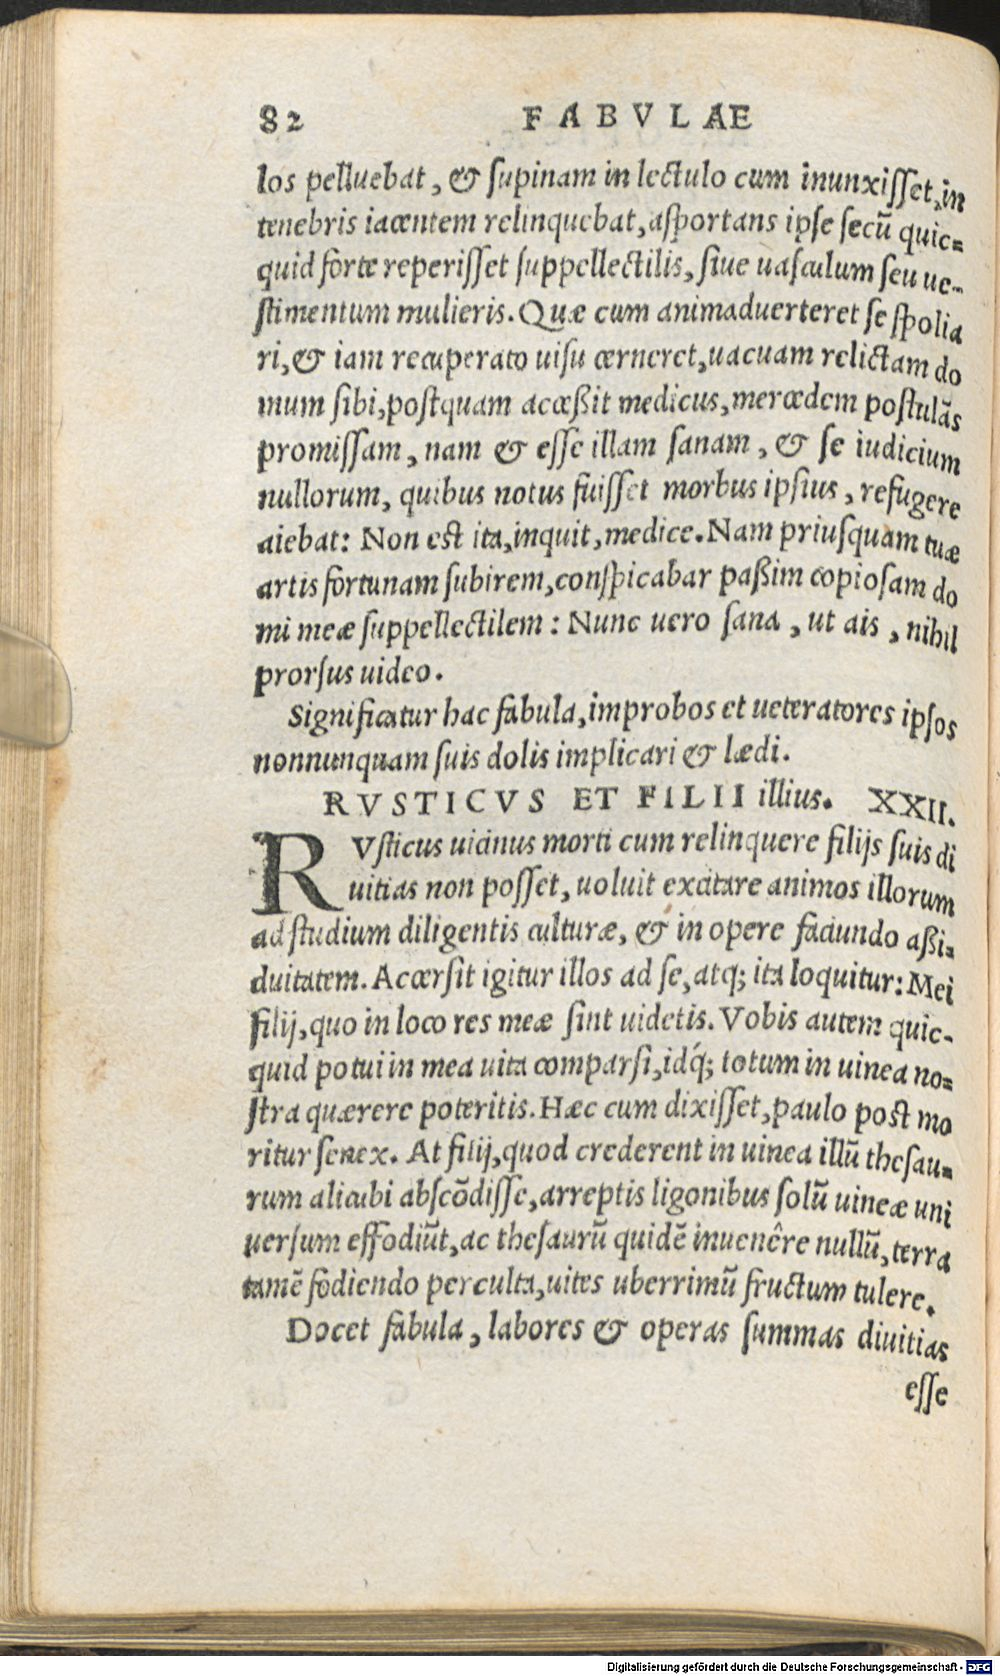 82 FABVLAE
los pelluebat, & supinam in lectulo cum inunxisset, in
tenebris iacentem relinquebat, asportans ipse secũ quic=
quid forte reperisset suppellectilis, siue uasculum seu ue-
stimentum mulieris. Quæ cum animaduerteret se spolia
ri, & iam recuperato uisu cerneret, uacuam relictam do
mum sibi, postquam accessit medicus, mercedem postulãs
promissam, nam & esse illam sanam, & se iudicium
nullorum, quibus notus fuisset morbus ipsius, refugere
aiebat: Non est ita, inquit, medice. Nam priusquam tuæ
artis fortunam subirem, conspicabar passim copiosam do
mi meæ suppellectilem: Nunc uero sana, ut ais, nihil
prorsus uideo.
Significatur hac fabula, improbos et ueteratores ipsos
nonnunquam suis dolis implicari & lædi.
RVSTICVS ET FILII illius. XXII.
RVsticus uicinus morti cum relinquere filijs suis di
uitias non posset, uoluit excitare animos illorum
ad studium diligentis culturæ, & in opere faciundo assi=
duitatem. Accersit igitur illos ad se, atq; ita loquitur: Mei
filij, quo in loco res meæ sint uidetis. Vobis autem quic-
quid potui in mea uita comparsi, idq́; totum in uinea no=
stra quærere poteritis. Hæc cum dixisset, paulo post mo
ritur senex. At filij, quod crederent in uinea illũ thesau=
rum alicubi abscõdisse, arreptis ligonibus solũ uineæ uni
uersum effodiũt, ac thesaurũ quidẽ inuenêre nullũ, terra
tamẽ fodiendo perculta, uites uberrimũ fructum tulere.
Docet fabula, labores & operas summas diuitias
esse
Digitalisierung gefördert durch die Deutsche Forschungsgemeinschaft - DFG